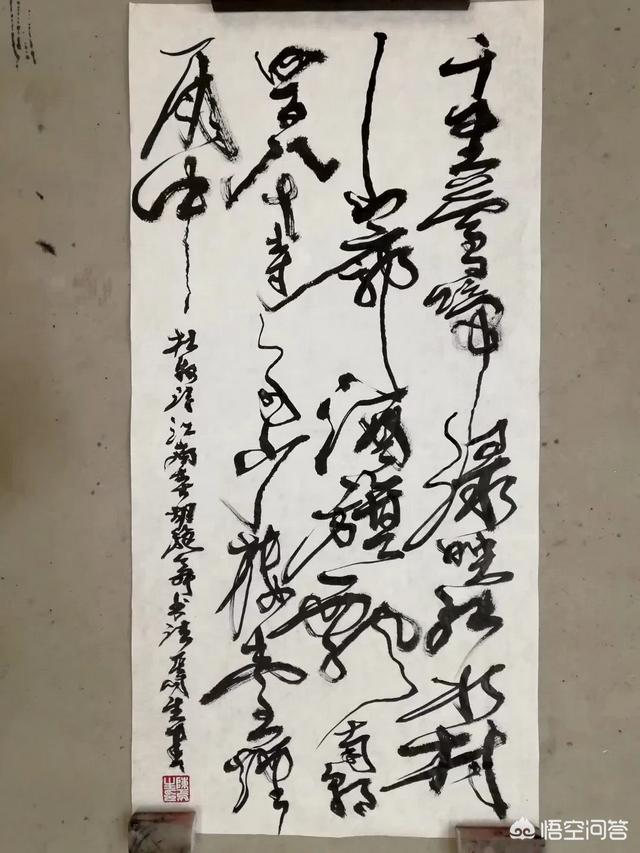 千里鶯啼綠映红水村
山郭酒旗飘南朝
四百八十寺多少楼台烟
雨中
杜牧诗江南春书法
悟空问答